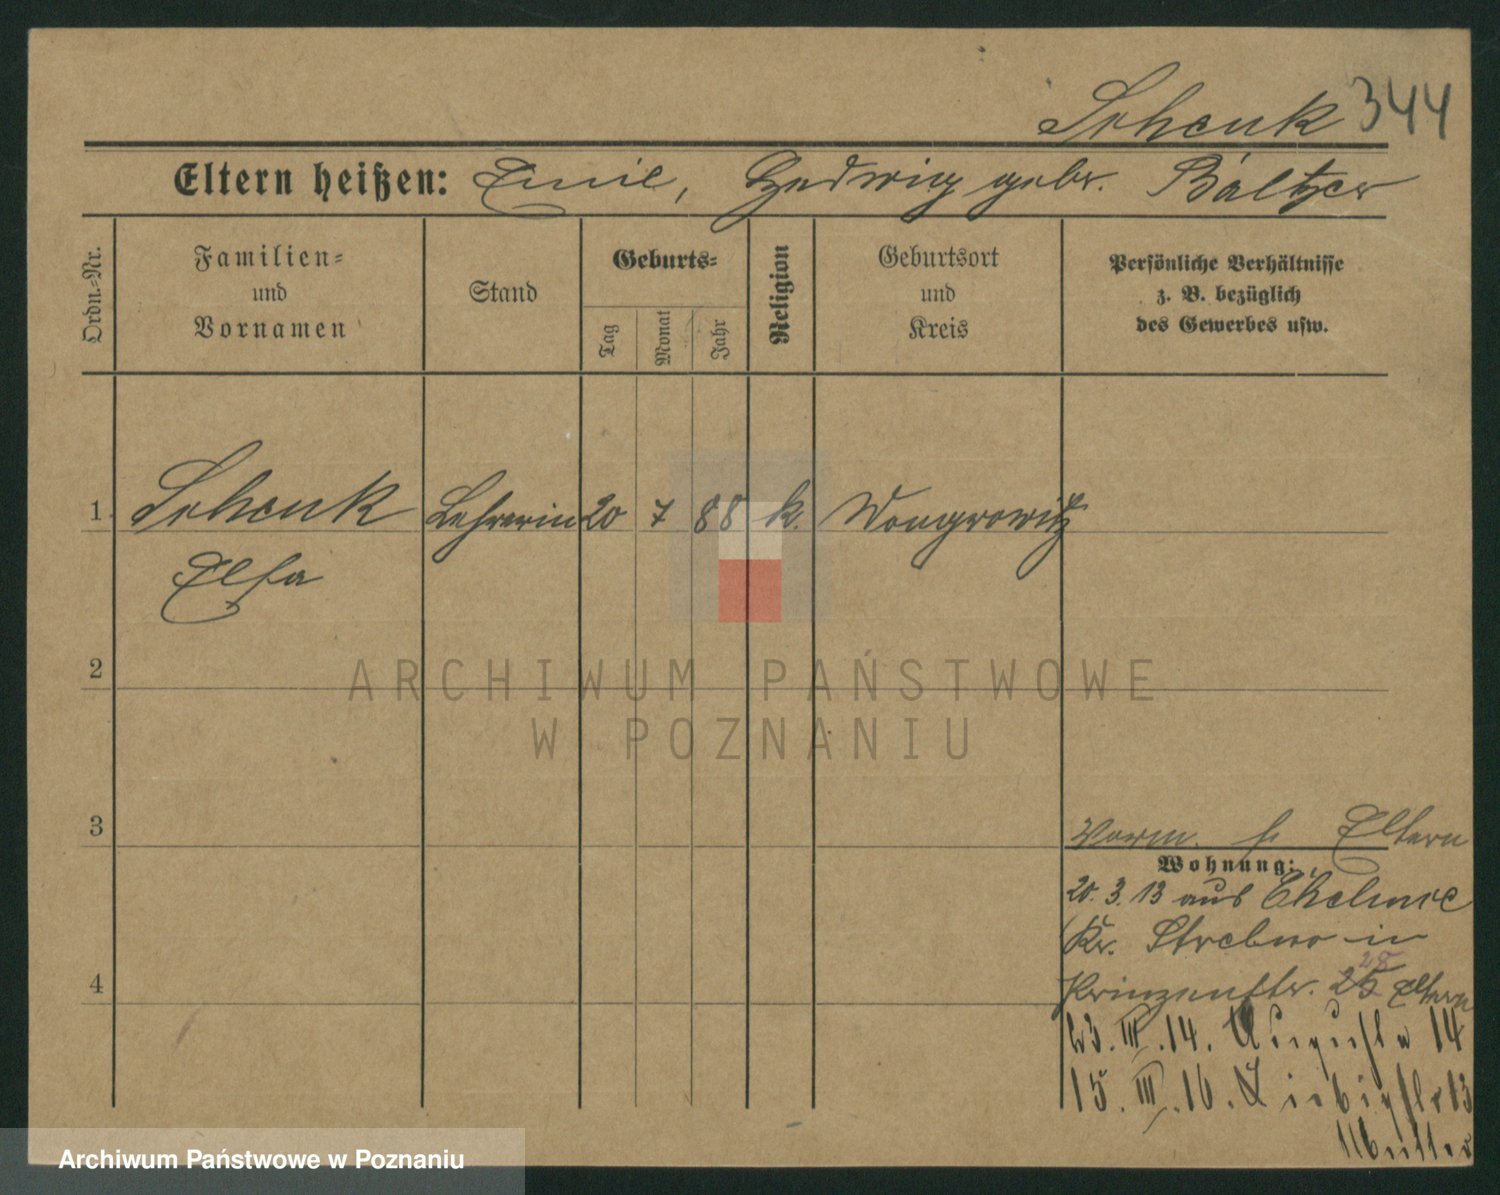 Schenk 344
Eltern heißen: Emil, Hedwig geb. Báltzer
Ordn.-Nr.
Familien-
und
Vornamen
Stand
Geburts-
Tag
Monat
Jahr
Religion
Geburtsort
und
Kreis
Persönliche Verhältnisse
z. B. bezüglich
des Gewerbes usw.
1 Schenk Lehrerin 20 7 88 k. Wongrowitz
Elsa
2
3
Vorm. s. Eltern
Wohnung:
20. 3. 13 aus Chelmce
Kr. Strelno in
Prinzenstr. 25 28 Eltern
23. III. 14. Augusta 14
15. III. 16. Liebigstr 13
Mutter
4
ARCHIWUM PAŃSTWOWE
W POZNANIU
Archiwum Państwowe w Poznaniu